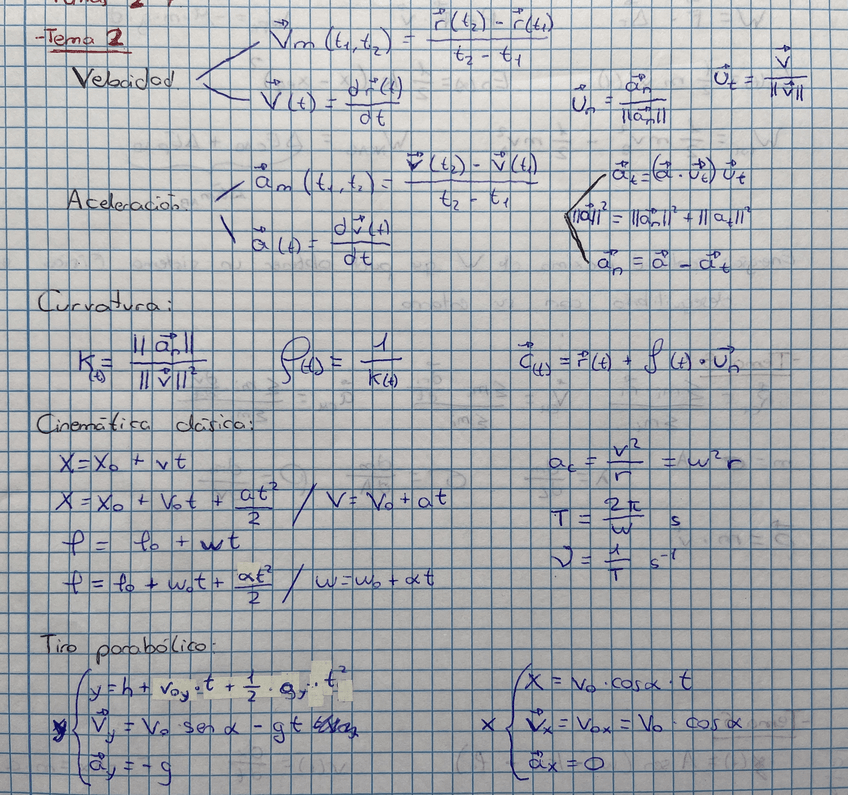 -Tema 2
Velocidad
v⃗m (t₁,t₂) = (r⃗(t₂) - r⃗(t₁)) / (t₂ - t₁)
v⃗(t) = dr⃗(t) / dt
u⃗n = a⃗n / ||a⃗n||
u⃗t = v⃗ / ||v⃗||
Aceleración
a⃗m (t₁,t₂) = (v⃗(t₂) - v⃗(t₁)) / (t₂ - t₁)
a⃗(t) = dv⃗(t) / dt
a⃗t = (a⃗ · u⃗t) u⃗t
||a⃗||² = ||a⃗n||² + ||at||²
a⃗n = a⃗ - a⃗t
Curvatura:
K(t) = ||a⃗n|| / ||v⃗||²
ρ(t) = 1 / K(t)
c⃗(t) = r⃗(t) + ρ(t) · u⃗n
Cinemática clásica:
x = x₀ + vt
x = x₀ + v₀t + at²/2 / v = v₀ + at
φ = φ₀ + ωt
φ = φ₀ + ω₀t + αt²/2 / ω = ω₀ + αt
ac = v²/r = ω²r
T = 2π/ω s
ν = 1/T s⁻¹
Tiro parabólico:
y = h + v₀y · t + 1/2 · gy · t²
v⃗y = v₀ · sen α - gt
a⃗y = -g
x
x = v₀ · cosα · t
v⃗x = v₀x = v₀ · cosα
a⃗x = 0